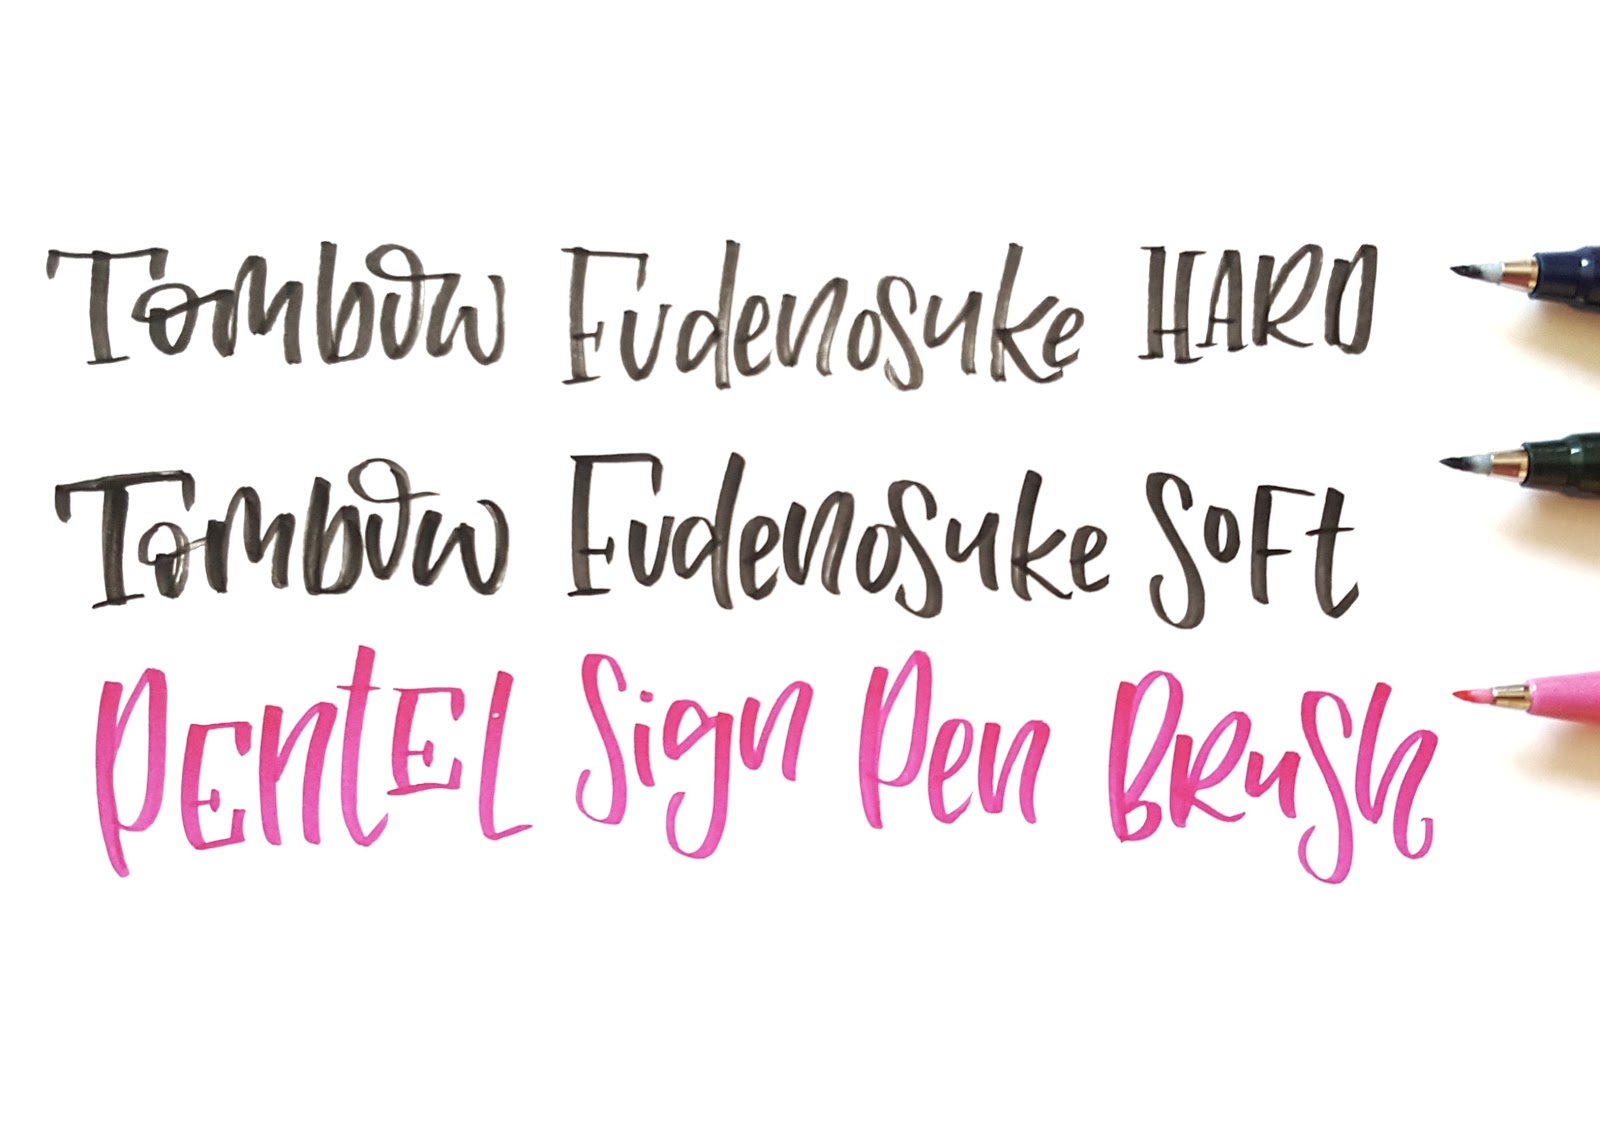 Tombow Fudenosuke HARD
Tombow Fudenosuke Soft
PENtEL Sign Pen BRuSh